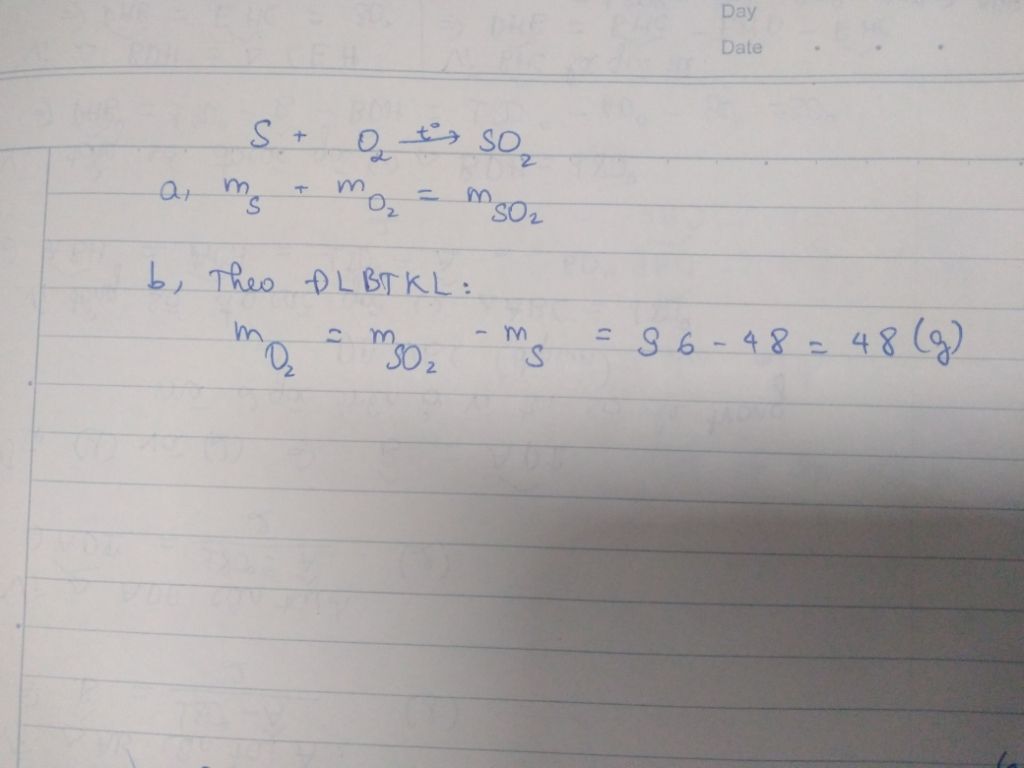 Day
Date
S + O₂ —t°→ SO₂
a, m_S + m_O₂ = m_SO₂
b, Theo ĐLBTKL:
m_O₂ = m_SO₂ - m_S = 96 - 48 = 48 (g)